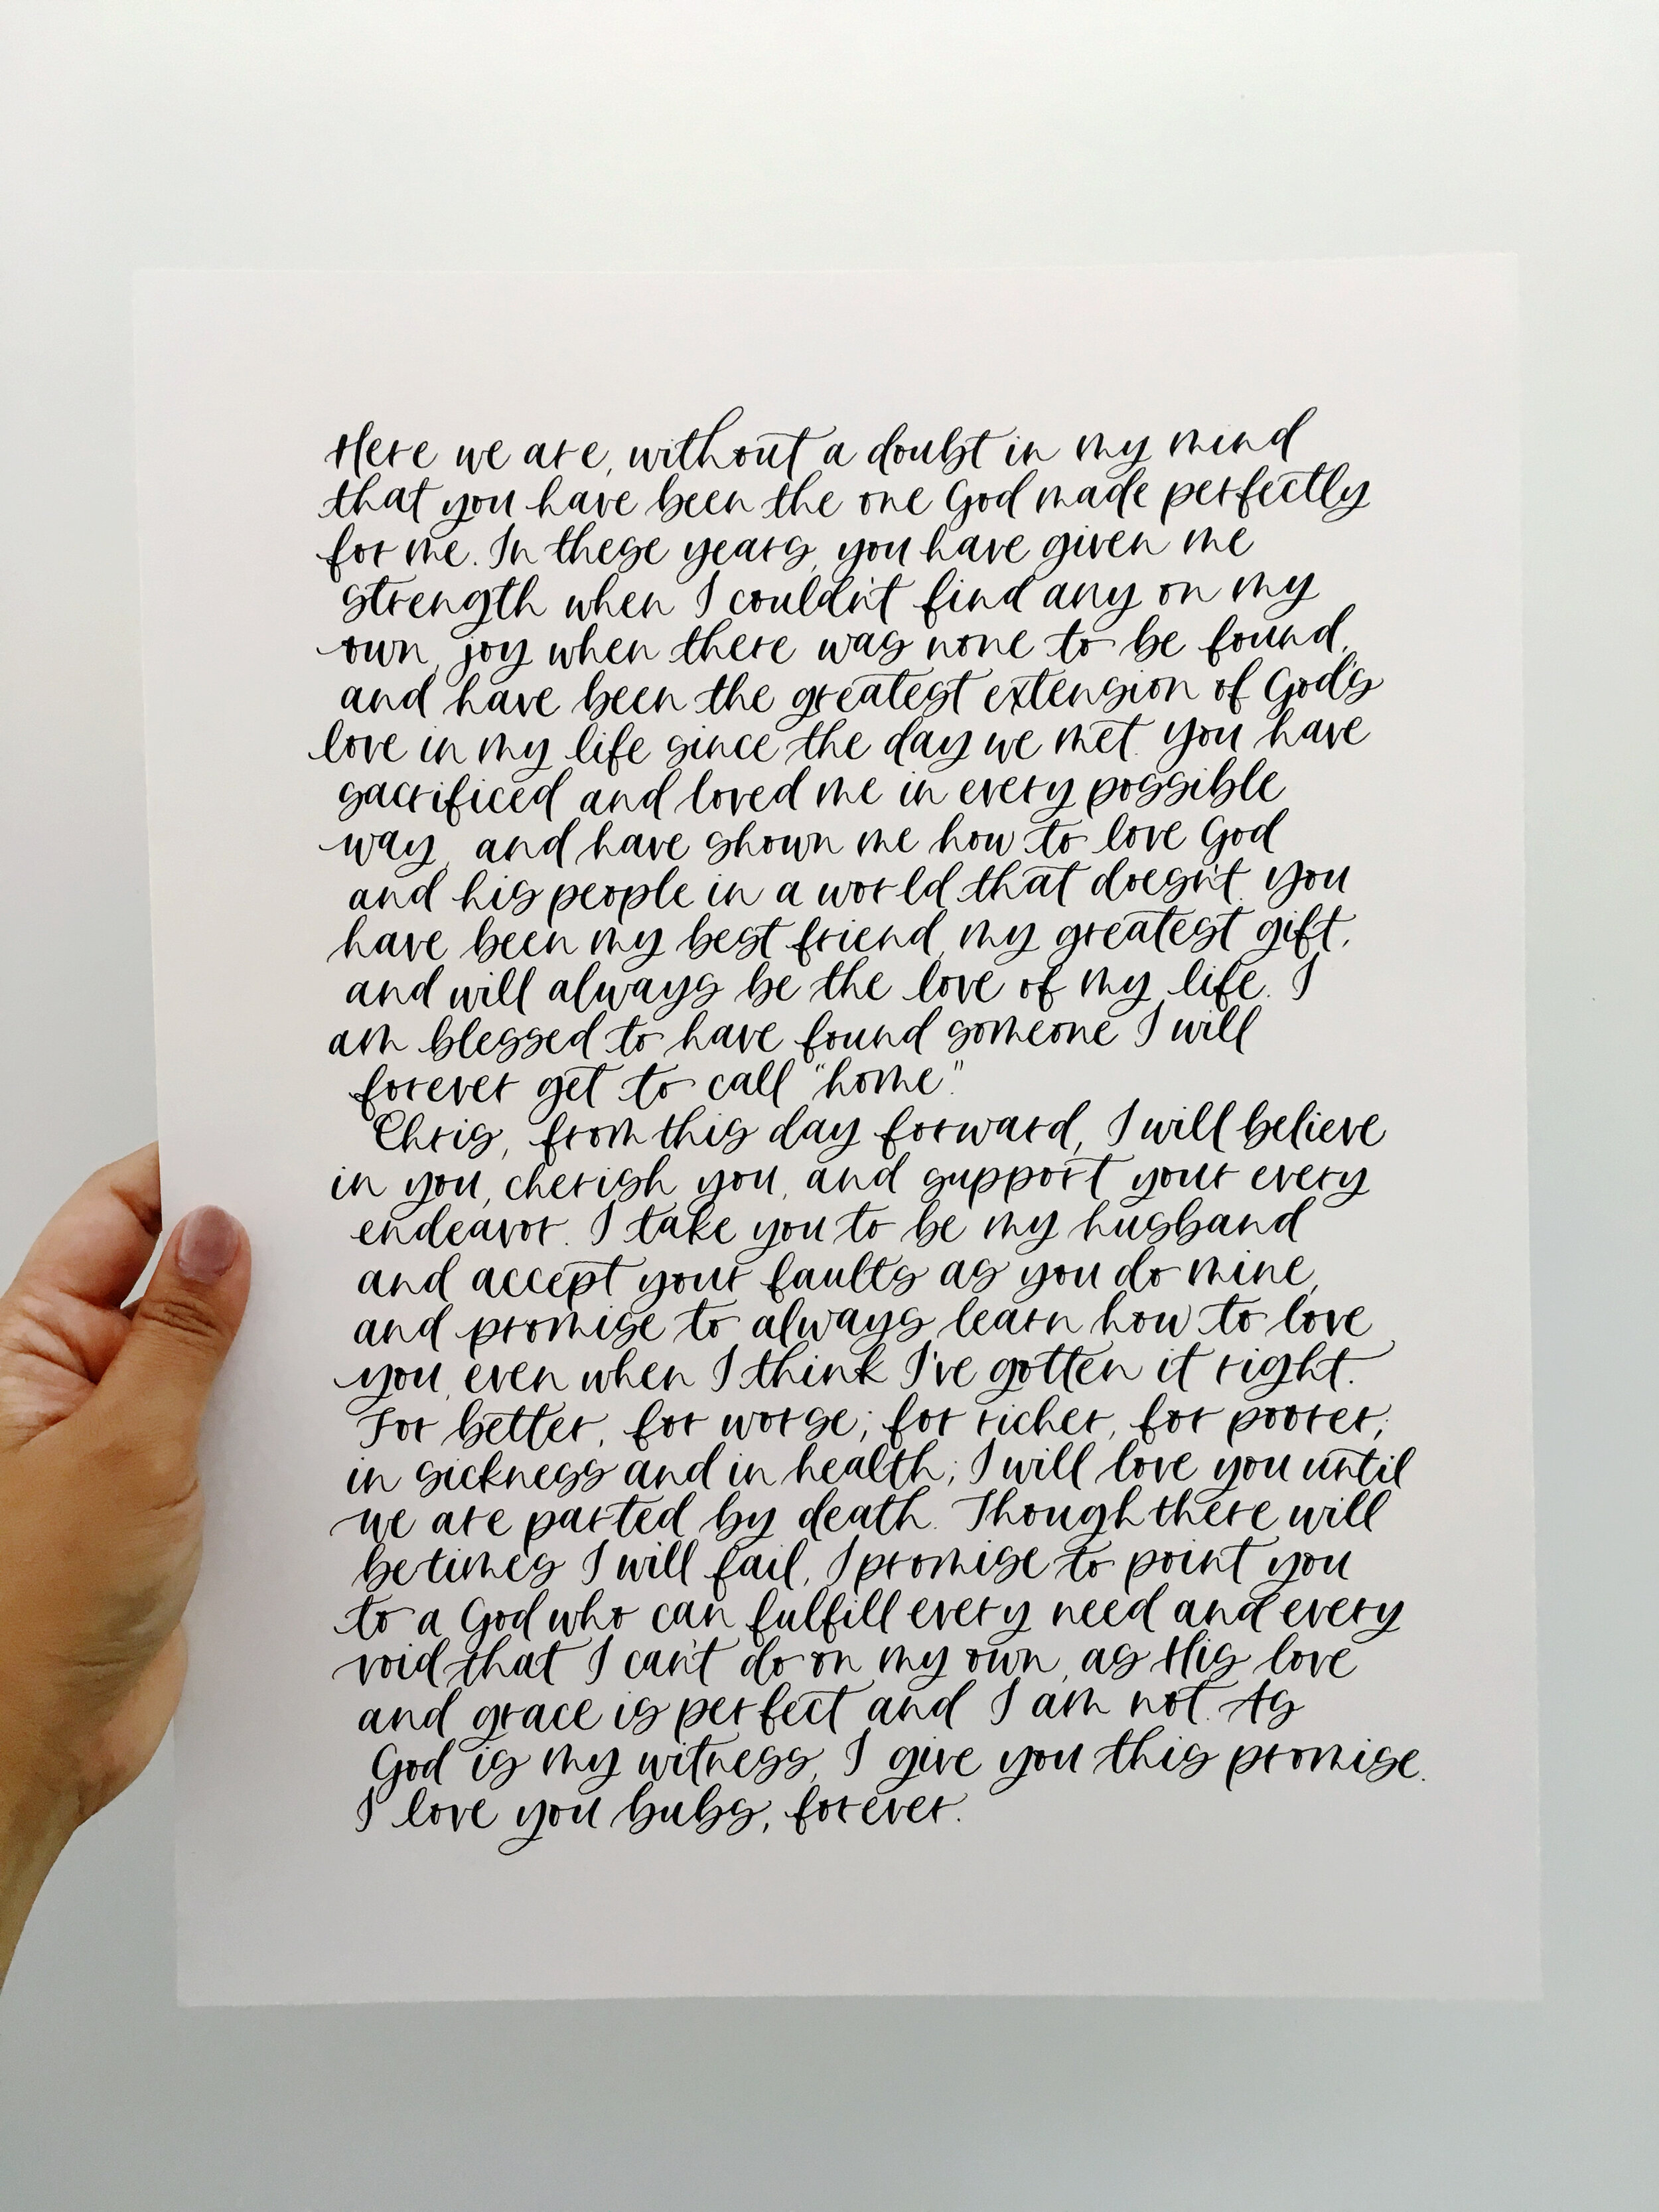 Here we are, without a doubt in my mind
that you have been the one God made perfectly
for me. In these years, you have given me
strength when I couldn't find any on my
own, joy when there was none to be found,
and have been the greatest extension of God's
love in my life since the day we met. You have
sacrificed and loved me in every possible
way, and have shown me how to love God
and his people in a world that doesn't. You
have been my best friend, my greatest gift,
and will always be the love of my life. I
am blessed to have found someone I will
forever get to call "home".
Chris, from this day forward, I will believe
in you, cherish you, and support your every
endeavor. I take you to be my husband
and accept your faults as you do mine,
and promise to always learn how to love
you, even when I think I've gotten it right.
For better, for worse; for richer, for poorer;
in sickness and in health; I will love you until
we are parted by death. Though there will
be times I will fail, I promise to point you
to a God who can fulfill every need and every
void that I can't do on my own, as His love
and grace is perfect and I am not. As
God is my witness, I give you this promise.
I love you bubs, forever.